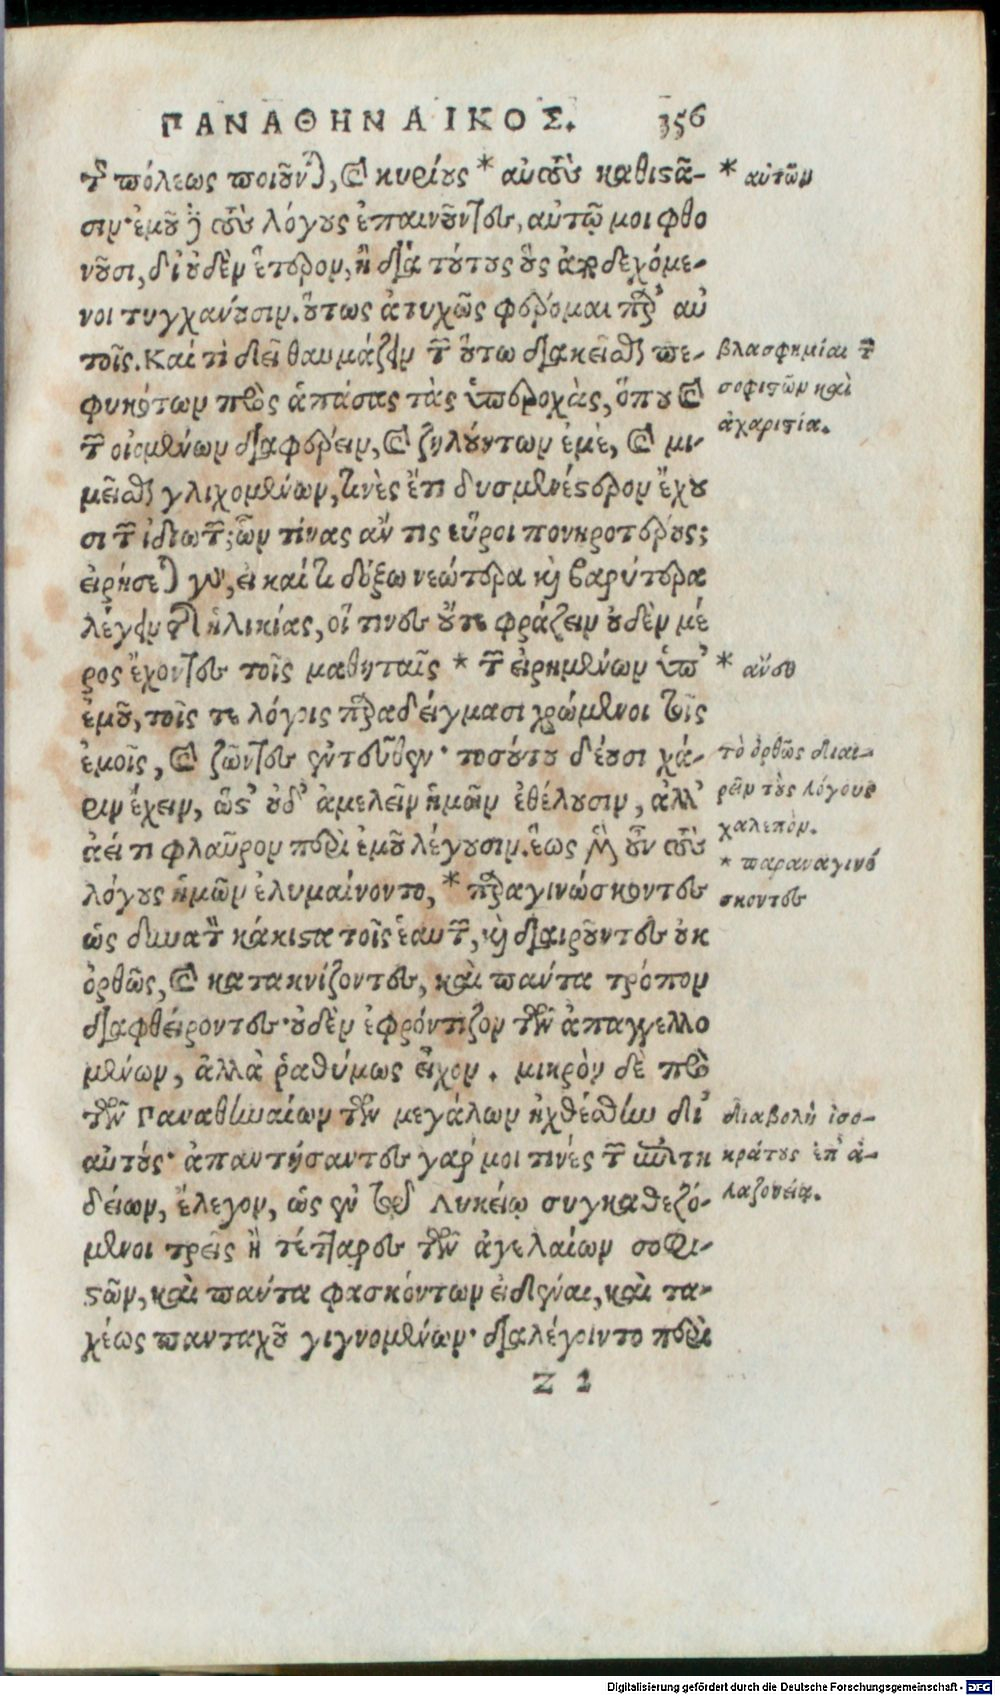 ΠΑΝΑΘΗΝΑΙΚΟΣ. 356
τῆς πόλεως ποιοῦνται, καὶ κυρίους * αὐτοὺς καθιστᾶ- * αὑτῶν
σιν· ἐμοῦ δὲ τοὺς λόγους ἐπαινοῦντες, αὐτῷ μοι φθο
νοῦσι, δι' οὐδὲν ἕτερον, ἢ διὰ τούτους οὓς ἀποδεχόμε-
νοι τυγχανουσιν. οὕτως ἀτυχῶς φέρομαι παρ' αὐ
τοῖς. Καὶ τί δεῖ θαυμάζειν τῶν οὕτω διακεῖσθαι πε-
φυκότων πρὸς ἁπάσας τὰς ὑπεροχὰς, ὅπου καὶ
τῶν οἰομένων διαφέρειν, καὶ ζηλούντων ἐμὲ, καὶ μι-
μεῖσθαι γλιχομένων, τινὲς ἔτι δυσμενέστερον ἔχου
σι τῶν ἰδιωτῶν; ὧν τίνας ἄν τις εὕροι πονηροτέρους;
εἰρήσεται γὰρ, εἰ καί τι δόξω νεώτερα καὶ βαρύτερα
λέγειν τῆς ἡλικίας, οἵ τινες οὔτε φράζειν οὐδὲν μέ
ρος ἔχοντες τοῖς μαθηταῖς * τῶν εἰρημένων ὑπ'
ἐμοῦ, τοῖς τε λόγοις παραδείγμασι χρώμενοι τοῖς
ἐμοῖς, καὶ ζῶντες ἐντεῦθεν· τοσούτου δέουσι χά-
ριν ἔχειν, ὥστ' οὐδ' ἀμελεῖν ἡμῶν ἐθέλουσιν, ἀλλ'
ἀεί τι φλαῦρον περὶ ἐμοῦ λέγουσιν. ἕως μὲν οὖν τοὺς
λόγους ἡμῶν ἐλυμαίνοντο, * παραγινώσκοντες
ὡς δυνατὸν κάκιστα τοῖς ἑαυτῶν, καὶ διαιροῦντες οὐκ
ὀρθῶς, καὶ κατακνίζοντες, καὶ πάντα τρόπον
διαφθείροντες· οὐδὲν ἐφρόντιζον τῶν ἀπαγγελλο
μένων, ἀλλὰ ῥαθύμως εἶχον. μικρὸν δὲ πρὸ
τῶν Παναθηναίων τῶν μεγάλων ἠχθέσθην δι'
αὐτούς· ἀπαντήσαντες γάρ μοι τινές τῶν ἐπιτη
δείων, ἔλεγον, ὡς ἐν τῷ Λυκείῳ συγκαθεζό-
μενοι τρεῖς ἢ τέτταρες τῶν ἀγελαίων σοφι-
στῶν, καὶ πάντα φασκόντων εἰδέναι, καὶ τα-
χέως πανταχοῦ γιγνομένων· διαλέγοιντο περὶ
Z 2
βλασφημίαι τῶν
σοφιστῶν καὶ
ἀχαριστία.
* ἄνευ
τὸ ὀρθῶς διαι-
ρεῖν τοὺς λόγους
χαλεπόν.
* παραναγινώ
σκοντες
διαβολὴ ἰσο-
κράτους ἐπ' ἀ-
λαζονείᾳ.
Digitalisierung gefördert durch die Deutsche Forschungsgemeinschaft - DFG